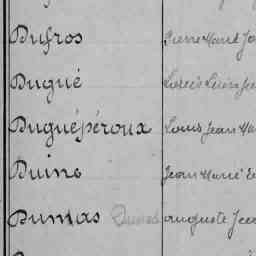 Dufros Pierre Marie Jo
Dugué Louis
Duguépéroux Louis Jean Ma
Duins Jean Marie
Dumas Dumas auguste Jean